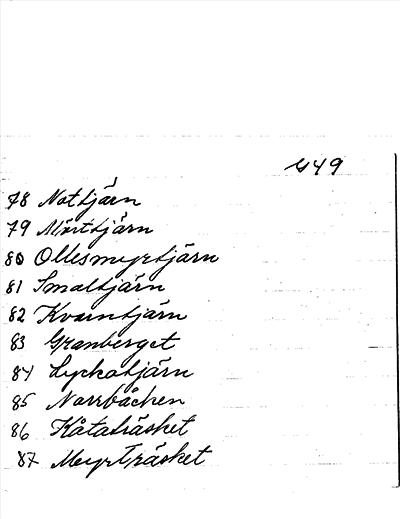 449
78 Nottjärn
79 Mårttjärn
80 Ollesmyrtjärn
81 Smaltjärn
82 Kvarntjärn
83 Granberget
84 Lyckatjärn
85 Norrbäcken
86 Kåtaträsket
87 Myrträsket